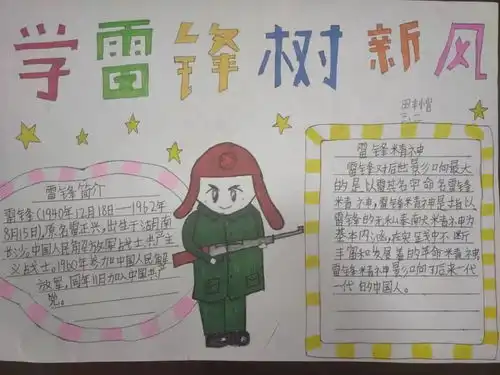 学雷锋树新风
三、二
雷锋简介
雷锋(1940年12月18日——1962年
8月15日),原名雷正兴,出生于湖南
长沙,中国人民解放军战士,共产主
义战士。1960年参加中国人民解
放军,同年11月加入中国共产
党。
雷锋精神
雷锋对后世影响最大
的是以雷其名字命名雷锋
精神,雷锋精神是指以
雷锋的无私奉献精神为
基本内涵,在实践中不断
丰富和发展着的革命精神,
雷锋精神影响了后来一代
一代的中国人。